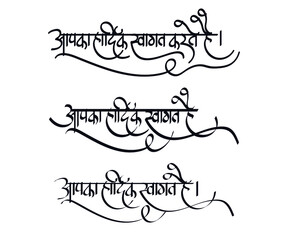 आपका हार्दिक स्वागत करते है।
आपका हार्दिक स्वागत है
आपका हार्दिक स्वागत है।